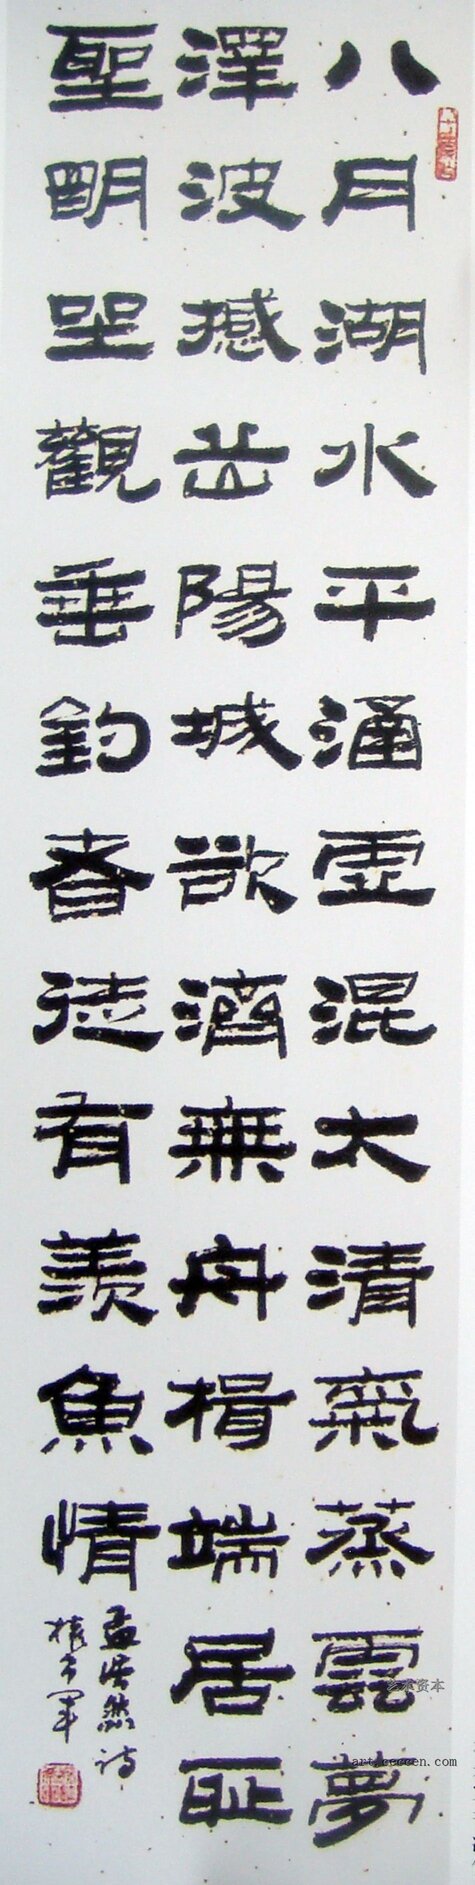 八月湖水平涵虛混太清氣蒸雲夢
澤波撼岳陽城欲濟無舟楫端居耻
聖明坐觀垂釣者徒有羨魚情
孟浩然詩
艺术资本